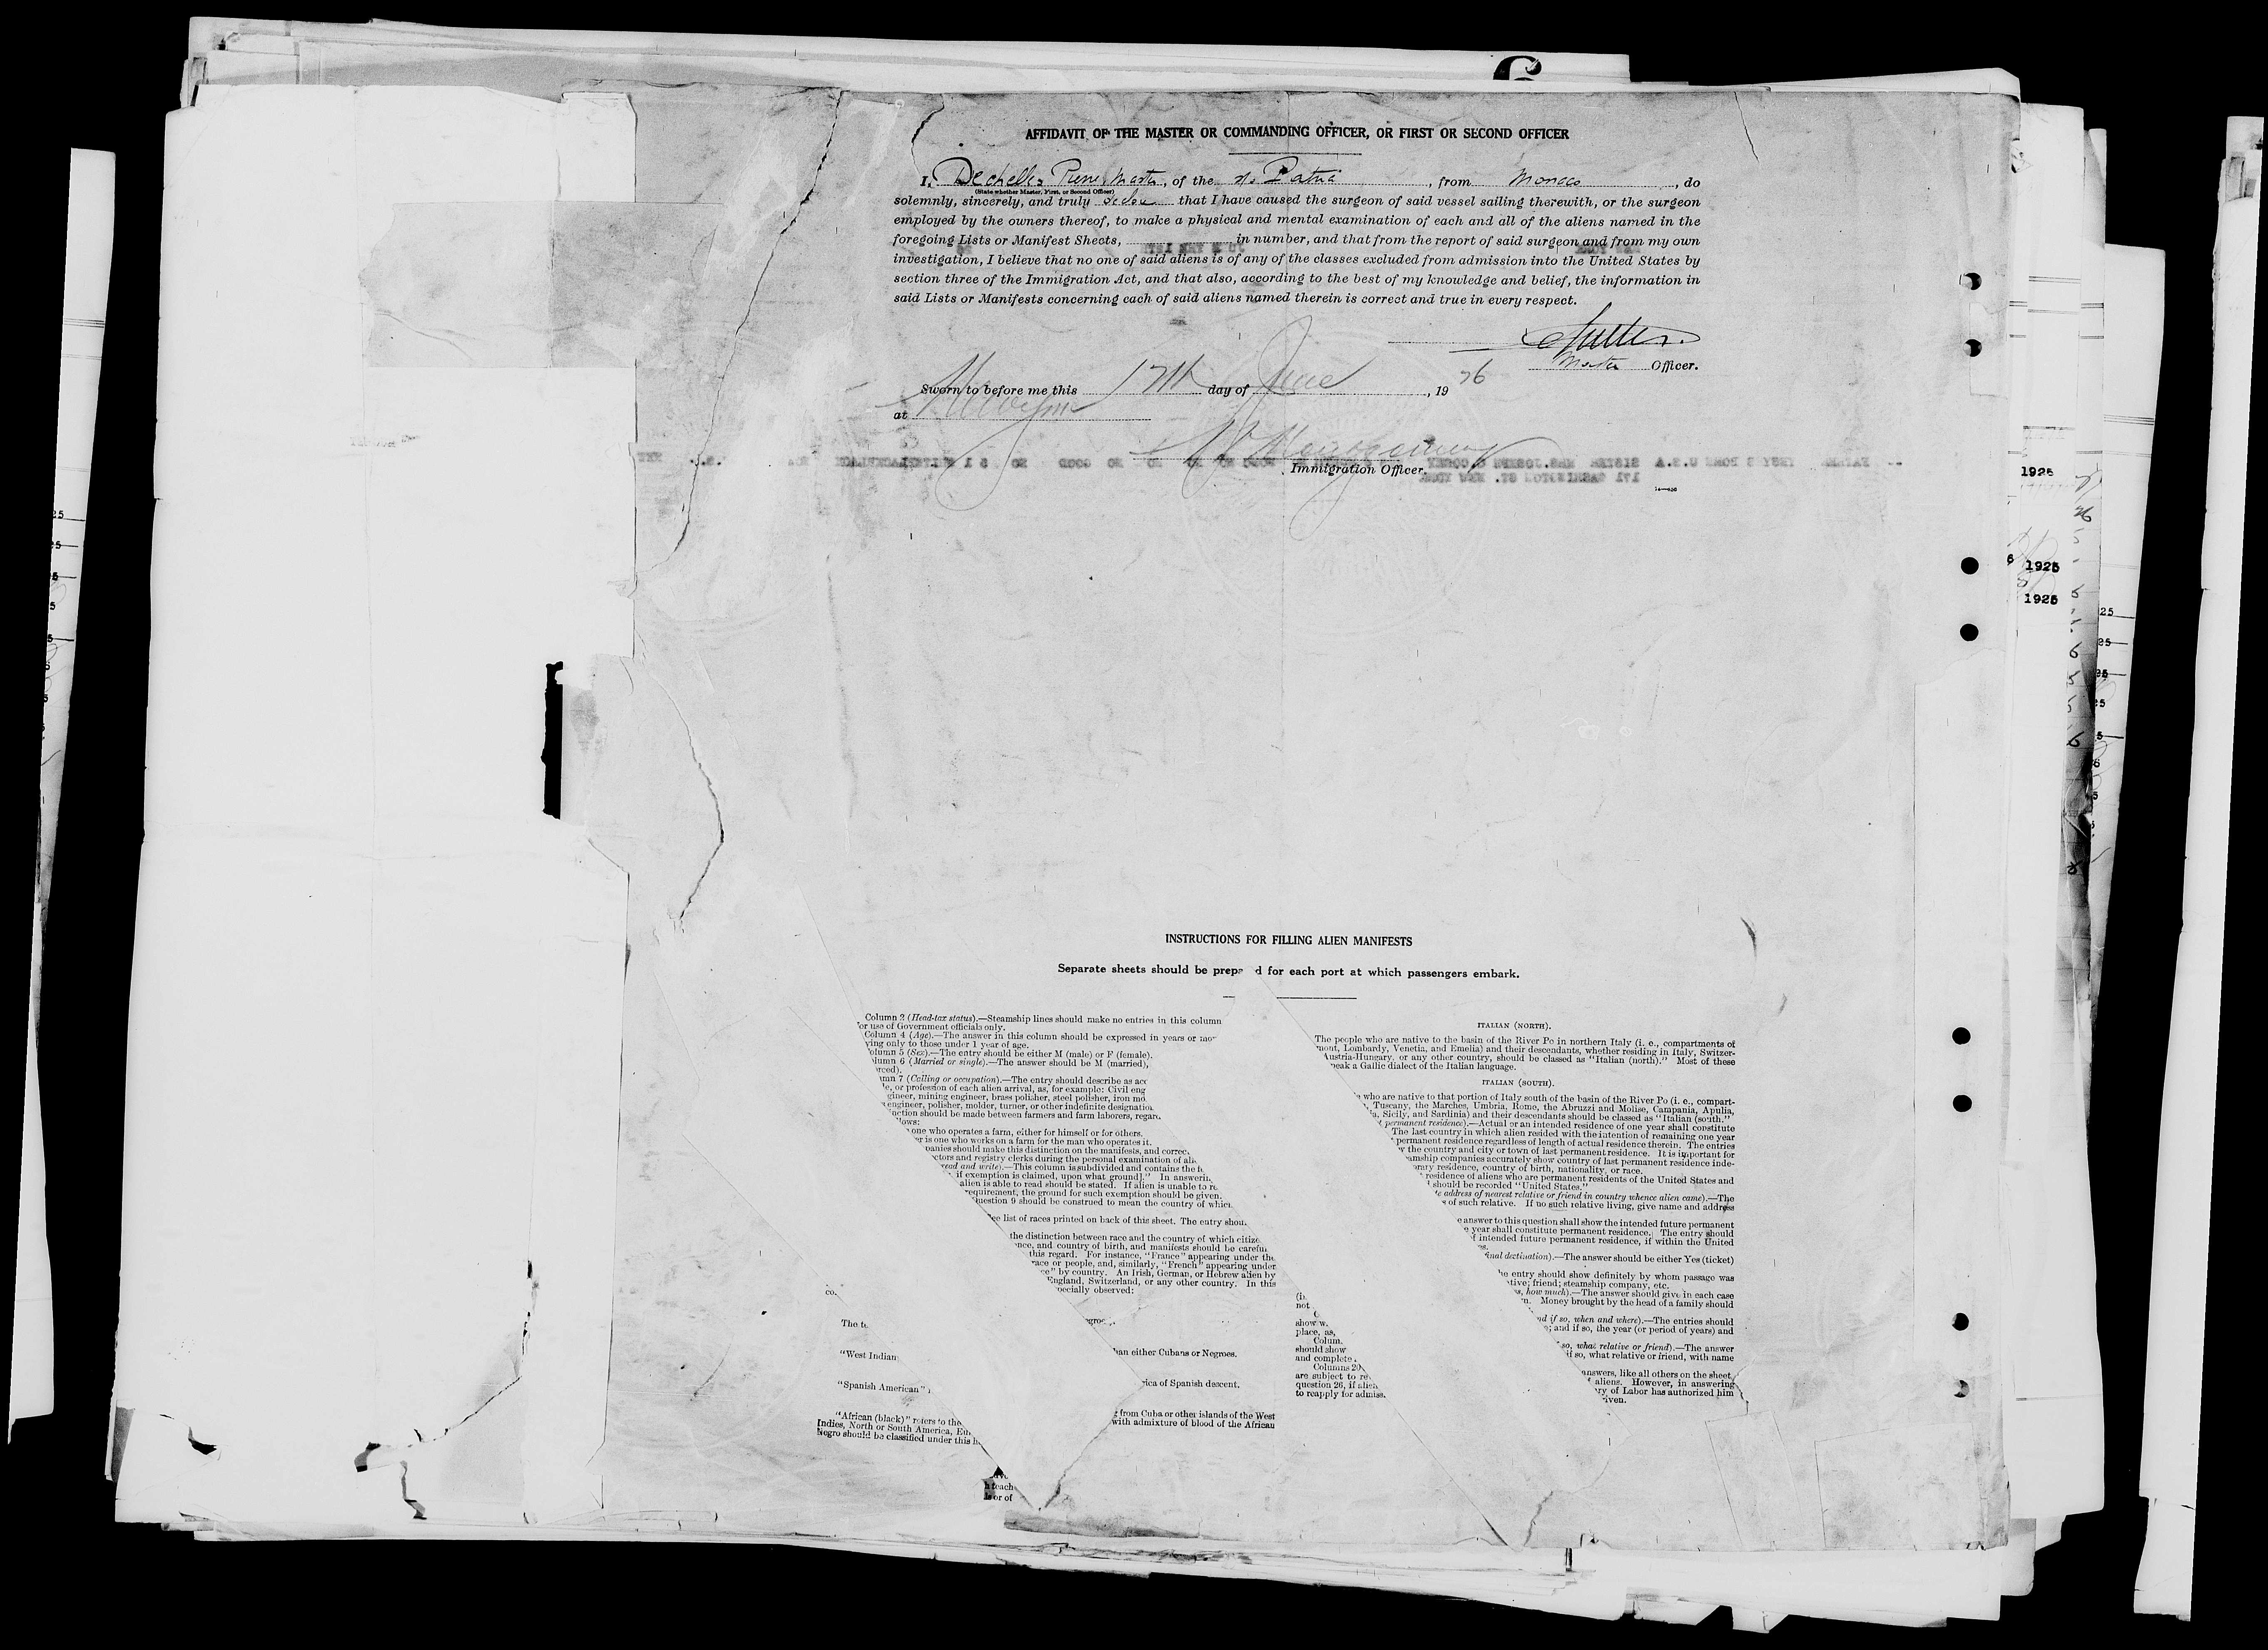 AFFIDAVIT OF THE MASTER OR COMMANDING OFFICER, OR FIRST OR SECOND OFFICER
I, Dechelles Pierre Master, of the s/s Patria, from Monaco, do
(State whether Master, First, or Second Officer)
solemnly, sincerely, and truly that I have caused the surgeon of said vessel sailing therewith, or the surgeon
employed by the owners thereof, to make a physical and mental examination of each and all of the aliens named in the
foregoing Lists or Manifest Sheets, in number, and that from the report of said surgeon and from my own
investigation, I believe that no one of said aliens is of any of the classes excluded from admission into the United States by
section three of the Immigration Act, and that also, according to the best of my knowledge and belief, the information in
said Lists or Manifests concerning each of said aliens named therein is correct and true in every respect.
Master Officer.
Sworn to before me this 17th day of June, 1926
at
Immigration Officer.
1925
6 1925
1925
INSTRUCTIONS FOR FILLING ALIEN MANIFESTS
Separate sheets should be prepa d for each port at which passengers embark.
Column 2 (Head-tax status).—Steamship lines should make no entries in this column
for use of Government officials only.
Column 4 (Age).—The answer in this column should be expressed in years or mon
ying only to those under 1 year of age.
olumn 5 (Sex).—The entry should be either M (male) or F (female).
olumn 6 (Married or single).—The answer should be M (married),
orced).
mn 7 (Calling or occupation).—The entry should describe as acc
le, or profession of each alien arrival, as, for example: Civil eng
gineer, mining engineer, brass polisher, steel polisher, iron mo
engineer, polisher, molder, turner, or other indefinite designation
nction should be made between farmers and farm laborers, regar
llows:
one who operates a farm, either for himself or for others.
er is one who works on a farm for the man who operates it.
panies should make this distinction on the manifests, and correc
ctors and registry clerks during the personal examination of ali
read and write).—This column is subdivided and contains the f
if exemption is claimed, upon what ground]." In answerin
alien is able to read should be stated. If alien is unable to re
requirement, the ground for such exemption should be given.
uestion 9 should be construed to mean the country of which
ee list of races printed on back of this sheet. The entry shou
the distinction between race and the country of which citize
ence, and country of birth, and manifests should be careful
this regard. For instance, "France" appearing under the
race or people, and, similarly, "French" appearing under
ce" by country. An Irish, German, or Hebrew alien by
England, Switzerland, or any other country. In this
pecially observed:
co
The te
egroe
"West Indian
han either Cubans or Negroes.
"Spanish American"
rica of Spanish descent.
"African (black)" refers to the
from Cuba or other islands of the West
Indies, North or South America, Eu
with admixture of blood of the African
Negro should be classified under this h
h teach
is or of
ITALIAN (NORTH).
The people who are native to the basin of the River Po in northern Italy (i. e., compartments of
mont, Lombardy, Venetia, and Emelia) and their descendants, whether residing in Italy, Switzer-
Austria-Hungary, or any other country, should be classed as "Italian (north)." Most of these
peak a Gallic dialect of the Italian language.
ITALIAN (SOUTH).
who are native to that portion of Italy south of the basin of the River Po (i. e., compart-
Tuscany, the Marches, Umbria, Rome, the Abruzzi and Molise, Campania, Apulia,
ia, Sicily, and Sardinia) and their descendants should be classed as "Italian (south."
t permanent residence).—Actual or an intended residence of one year shall constitute
The last country in which alien resided with the intention of remaining one year
permanent residence regardless of length of actual residence therein. The entries
w the country and city or town of last permanent residence. It is important for
amship companies accurately show country of last permanent residence inde-
orary residence, country of birth, nationality, or race.
residence of aliens who are permanent residents of the United States and
l should be recorded "United States."
te address of nearest relative or friend in country whence alien came).—The
s of such relative. If no such relative living, give name and address
e answer to this question shall show the intended future permanent
e year shall constitute permanent residence. The entry should
f intended future permanent residence, if within the United
es.
final destination).—The answer should be either Yes (ticket)
he entry should show definitely by whom passage was
tive; friend; steamship company, etc.
s, how much).—The answer should give in each case
n. Money brought by the head of a family should
(i
not
nd if so, when and where).—The entries should
show w
; and if so, the year (or period of years) and
place, as,
Colum
so, what relative or friend).—The answer
should show
if so, what relative or friend, with name
and complete
Columns 20
answers, like all others on the sheet,
are subject to re
aliens. However, in answering
question 26, if alien
ry of Labor has authorized him
to reapply for admiss
iven.